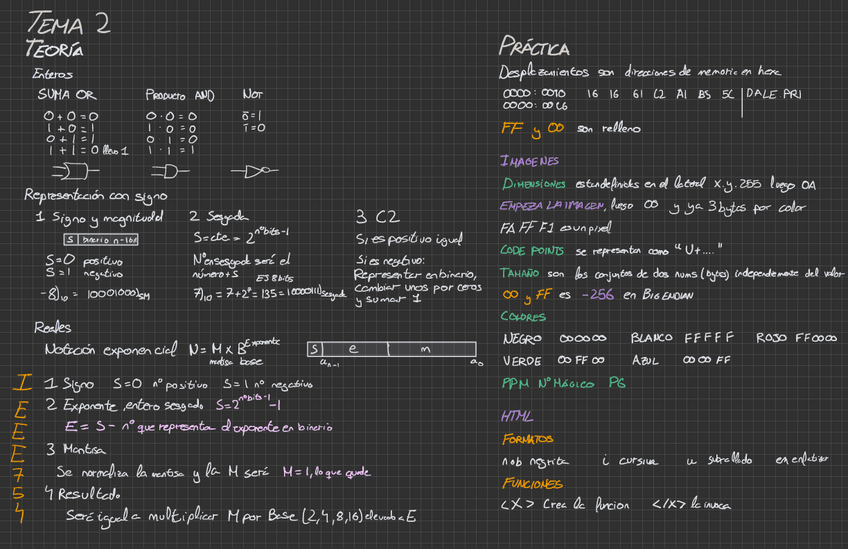 TEMA 2
TEORÍA
Enteros
SUMA OR
0 + 0 = 0
1 + 0 = 1
0 + 1 = 1
1 + 1 = 0 llevo 1
PRODUCTO AND
0 · 0 = 0
1 · 0 = 0
0 · 1 = 0
1 · 1 = 1
NOT
0̅ = 1
1̅ = 0
Representación con signo
1 Signo y magnitudd
S binario n-1bit
S=0 positivo
S=1 negativo
-8)₁₀ = 10001000)SM
2 Sesgada
S=cte = 2^nºbits-1
Nºensesgado será el
número+S
EJ 8 bits
7)₁₀ = 7+2⁷ = 135 = 10000111)sesgada
3 C2
Si es positivo igual
Si es negativo:
Representar en binario,
cambiar unos por ceros
y sumar 1
Reales
Notación exponencial N = M x B^Exponente
mantisa base
S e m
aₙ₋₁ a₀
IEEE754
1 Signo S=0 nº positivo S=1 nº negativo
2 Exponente, entero sesgado S=2^nºbits-1 -1
E = S - nº que representa el exponente en binario
3 Mantisa
Se normaliza la mantisa y la M será M=1, lo que quede
4 Resultado
Será igual a multiplicar M por Base (2,4,8,16) elevado a E
PRÁCTICA
Desplazamientos son direcciones de memoria en hexa
0000:0010 16 16 61 C2 A1 B5 5C | DALE.PRI
0000:00C6
FF y 00 son relleno
IMAGENES
DIMENSIONES estan definidas en el lateral x.y.255 luego 0A
EMPEZA LA IMAGEN, luego 00 y ya 3 bytes por color
FA FF F1 es un pixel
CODE POINTS se representan como "U+...."
TAMAÑO son los conjuntos de dos nums (bytes) independientemente del valor
00 y FF es -256 en BIG ENDIAN
COLORES
NEGRO 000000 BLANCO FFFFF ROJO FF0000
VERDE 00 FF 00 AZUL 0000 FF
PPM Nº MÁGICO P6
HTML
FORMATOS
n o b negrita i cursiva u subrallado
FUNCIONES
<X> Crea la funcion </X> la invoca